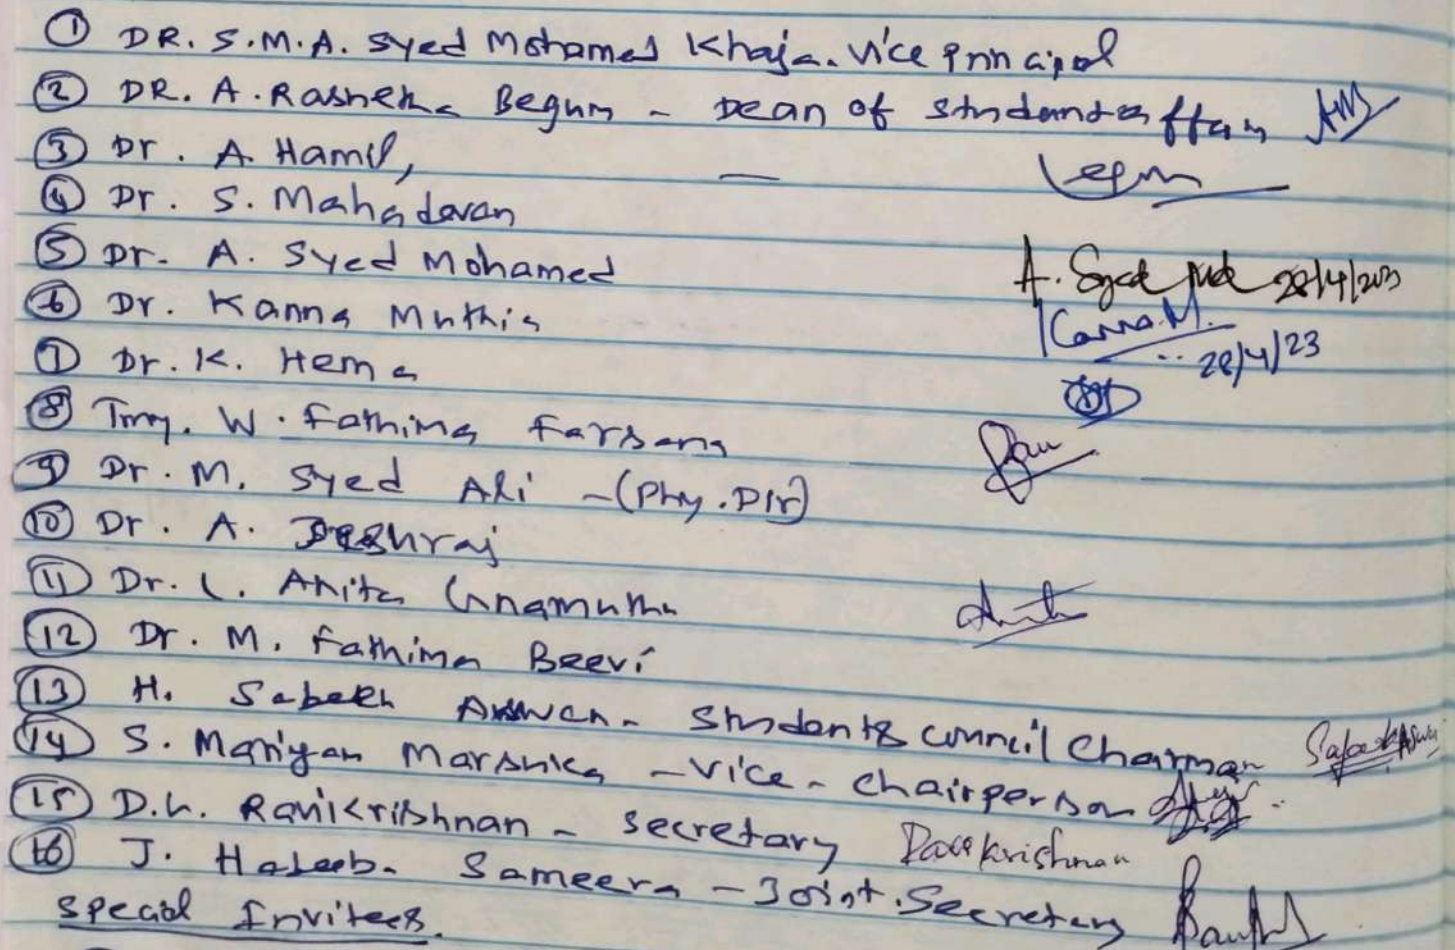 ① DR. S.M.A. Syed Mohamed Khaja. Vice Principal
② DR. A. Rasheeka Begum - Dean of Student affairs
③ Dr. A. Hamil,
④ Dr. S. Mahadevan
⑤ Dr. A. Syed Mohamed A. Syed 28/4/2023
⑥ Dr. Kanna Muthia Kanna.M. 28/4/23
⑦ Dr. K. Hema
⑧ Tmy. W. Fathima Farsana
⑨ Dr. M. Syed Ali - (Phy. Dir)
⑩ Dr. A.
⑪ Dr. L. Anita Gnanamuthu
⑫ Dr. M. Fathima Beevi
⑬ H. - Students council Chairman
⑭ S. Mariyam Marshika - Vice - Chairperson
⑮ D.h. Ravikrishnan - Secretary Ravikrishnan
⑯ J. Sameera - Joint. Secretary
Special Invitees.